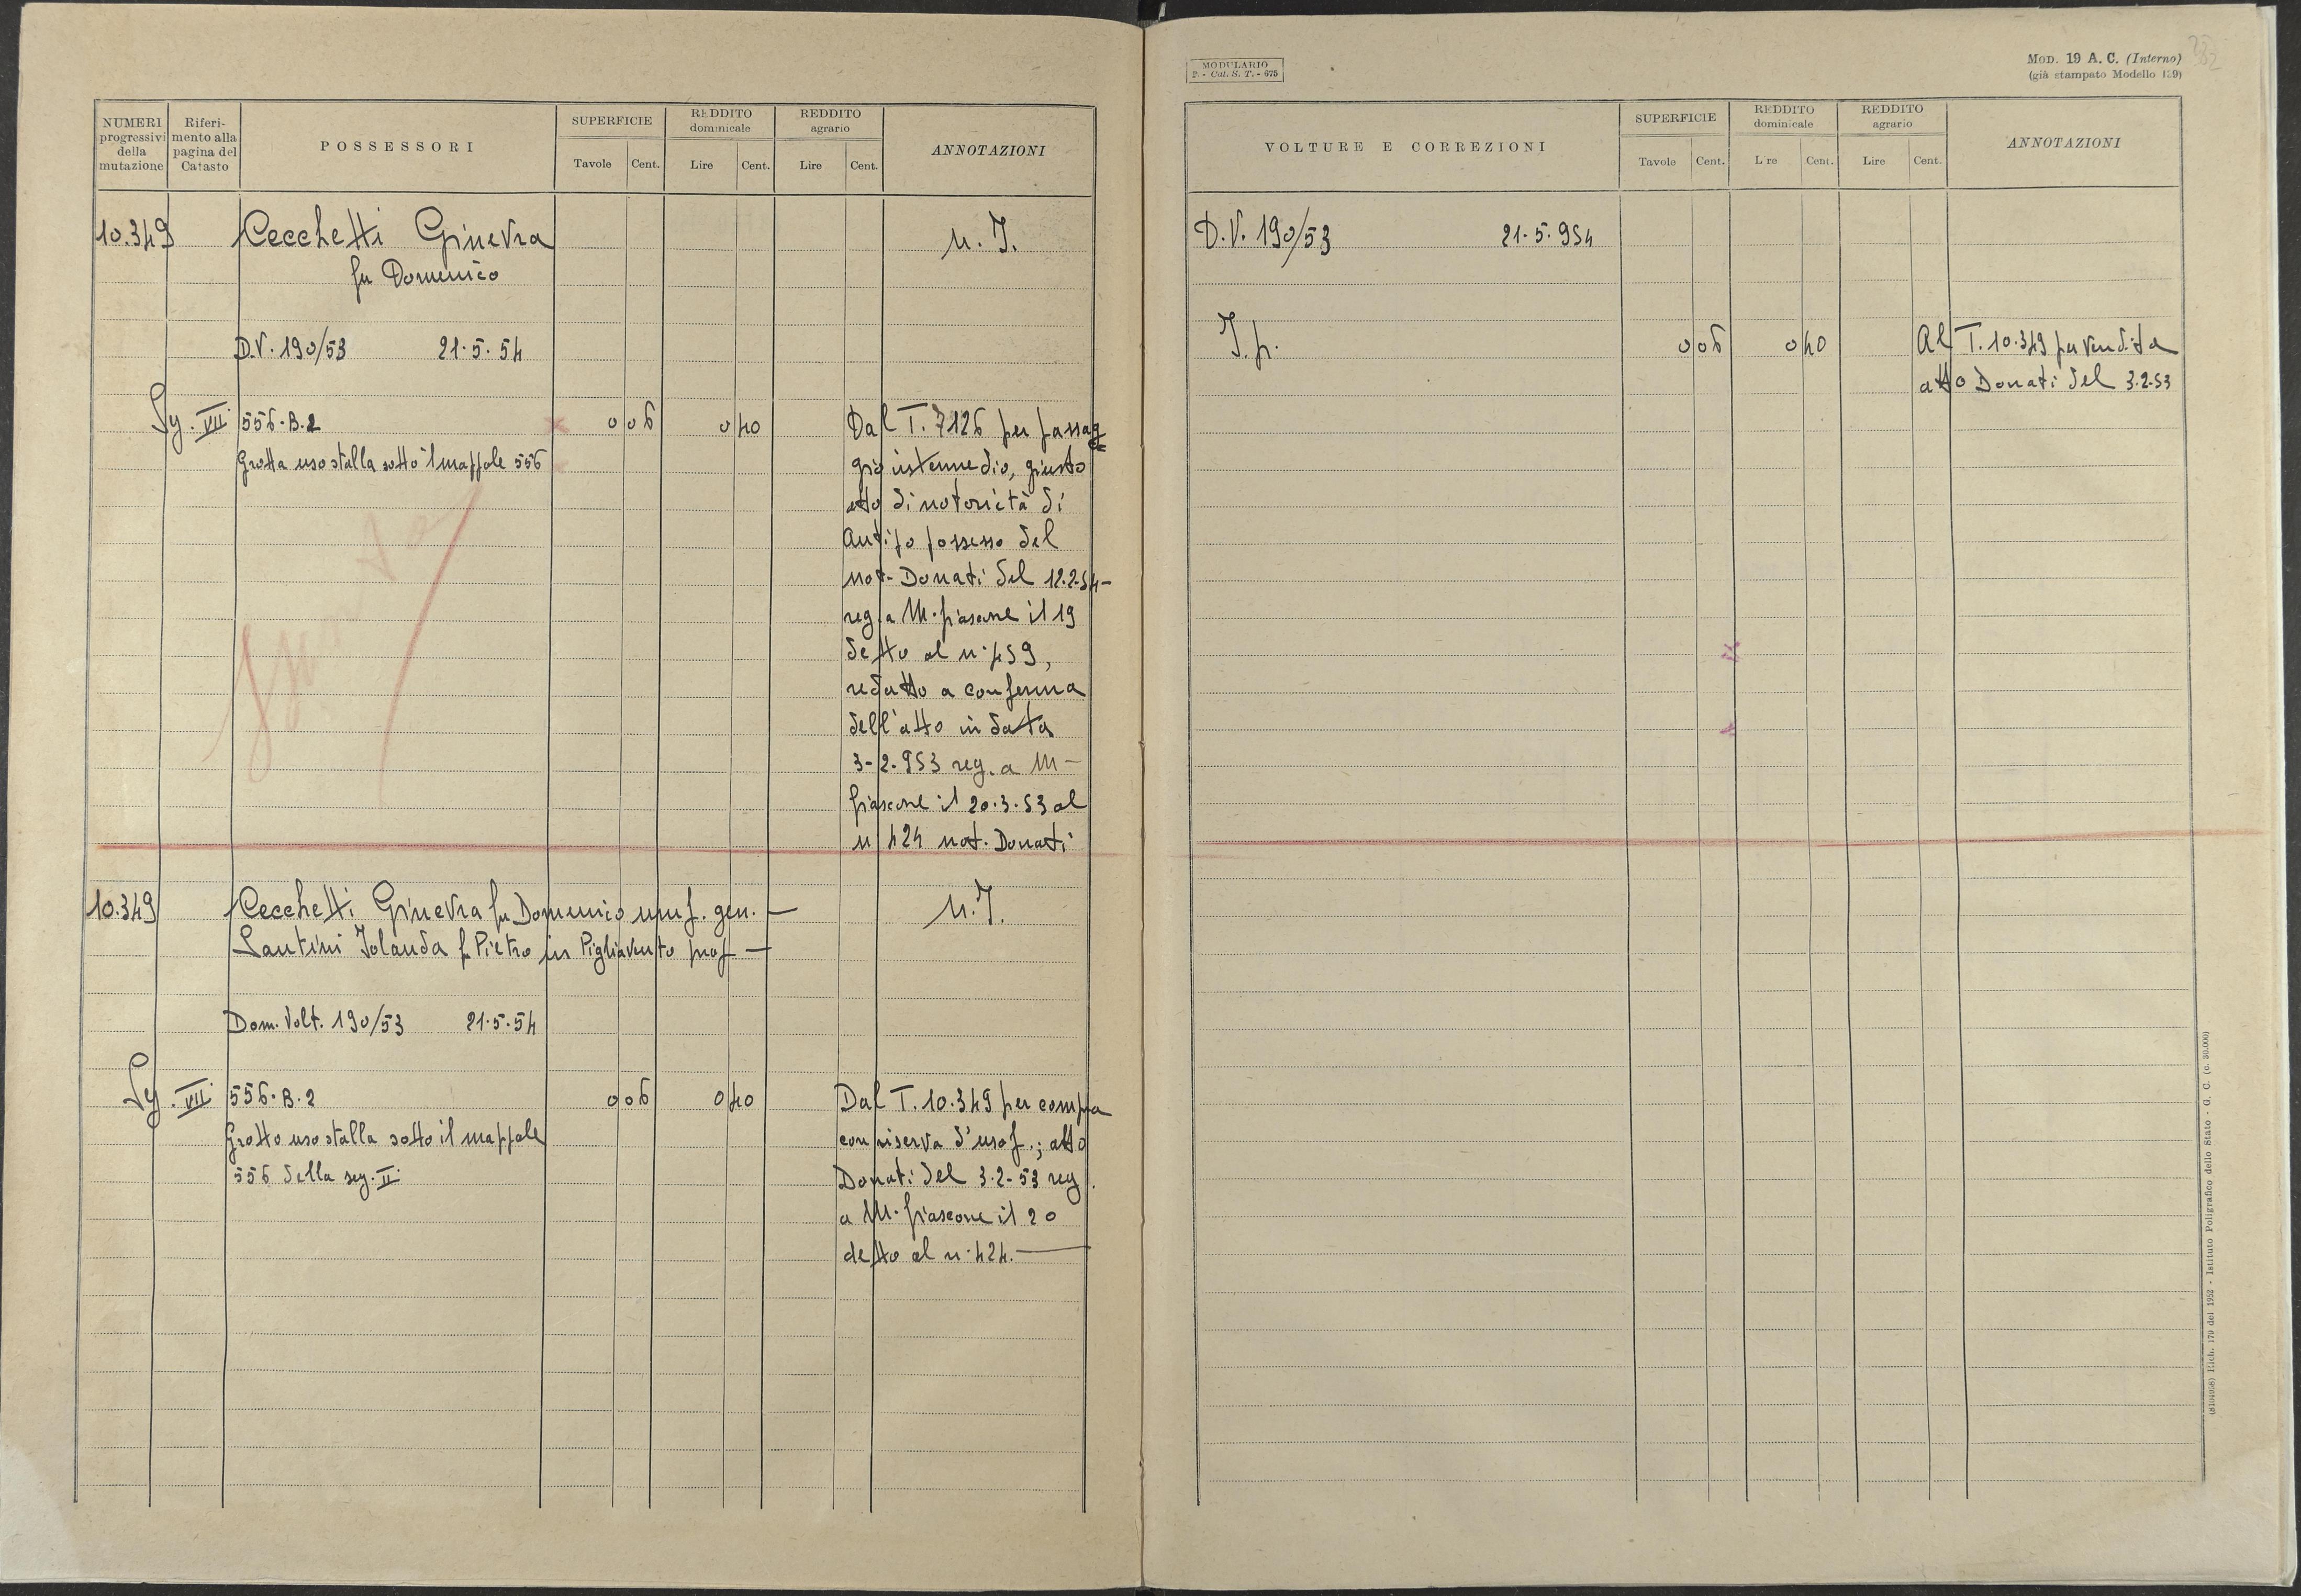 NUMERI progressivi della mutazione
Riferimento alla pagina del Catasto
POSSESSORI
SUPERFICIE
Tavole Cent.
REDDITO dominicale
Lire Cent.
REDDITO agrario
Lire Cent.
ANNOTAZIONI
10.349 Cecchetti Ginevra n. I.
fu Domenico
D.V. 190/53 21.5.54
Sez. VII 556.B.2 0 06 0 40 Dal T. 7126 per passag
Grotta uso stalla sotto il mappale 556 gio intermedio, giusto
atto di notorietà di
Antico possesso del
not. Donati del 12.2.54-
reg. a M.fiascone il 19
detto al n. 459,
redatto a conferma
dell'atto in data
3-2-953 reg. a M-
fiascone il 20.3.53 al
n 424 not. Donati
10.349 Cecchetti Ginevra fu Domenico usuf. gen. — n. I.
Santini Jolanda fu Pietro in Pigliavento prop —
Dom. Volt. 190/53 21.5.54
Sez. VII 556.B.2 0 06 0 40 Dal T. 10.349 per compra
Grotto uso stalla sotto il mappale con riserva d'usuf.; atto
556 della sez. II Donati del 3.2-53 reg.
a M.fiascone il 20
detto al n. 424. —
MODULARIO
F. - Cat. S. T. - 675
MOD. 19 A. C. (Interno)
(già stampato Modello 129)
VOLTURE E CORREZIONI
SUPERFICIE
Tavole Cent.
REDDITO dominicale
Lire Cent.
REDDITO agrario
Lire Cent.
ANNOTAZIONI
D.V. 190/53 21.5.954
I.p. 0 06 0 40 Al T. 10.349 per vendita
atto Donati del 3.2.53
Rich. 170 del 1952 - Istituto Poligrafico dello Stato - G. C. (c. 30.000)